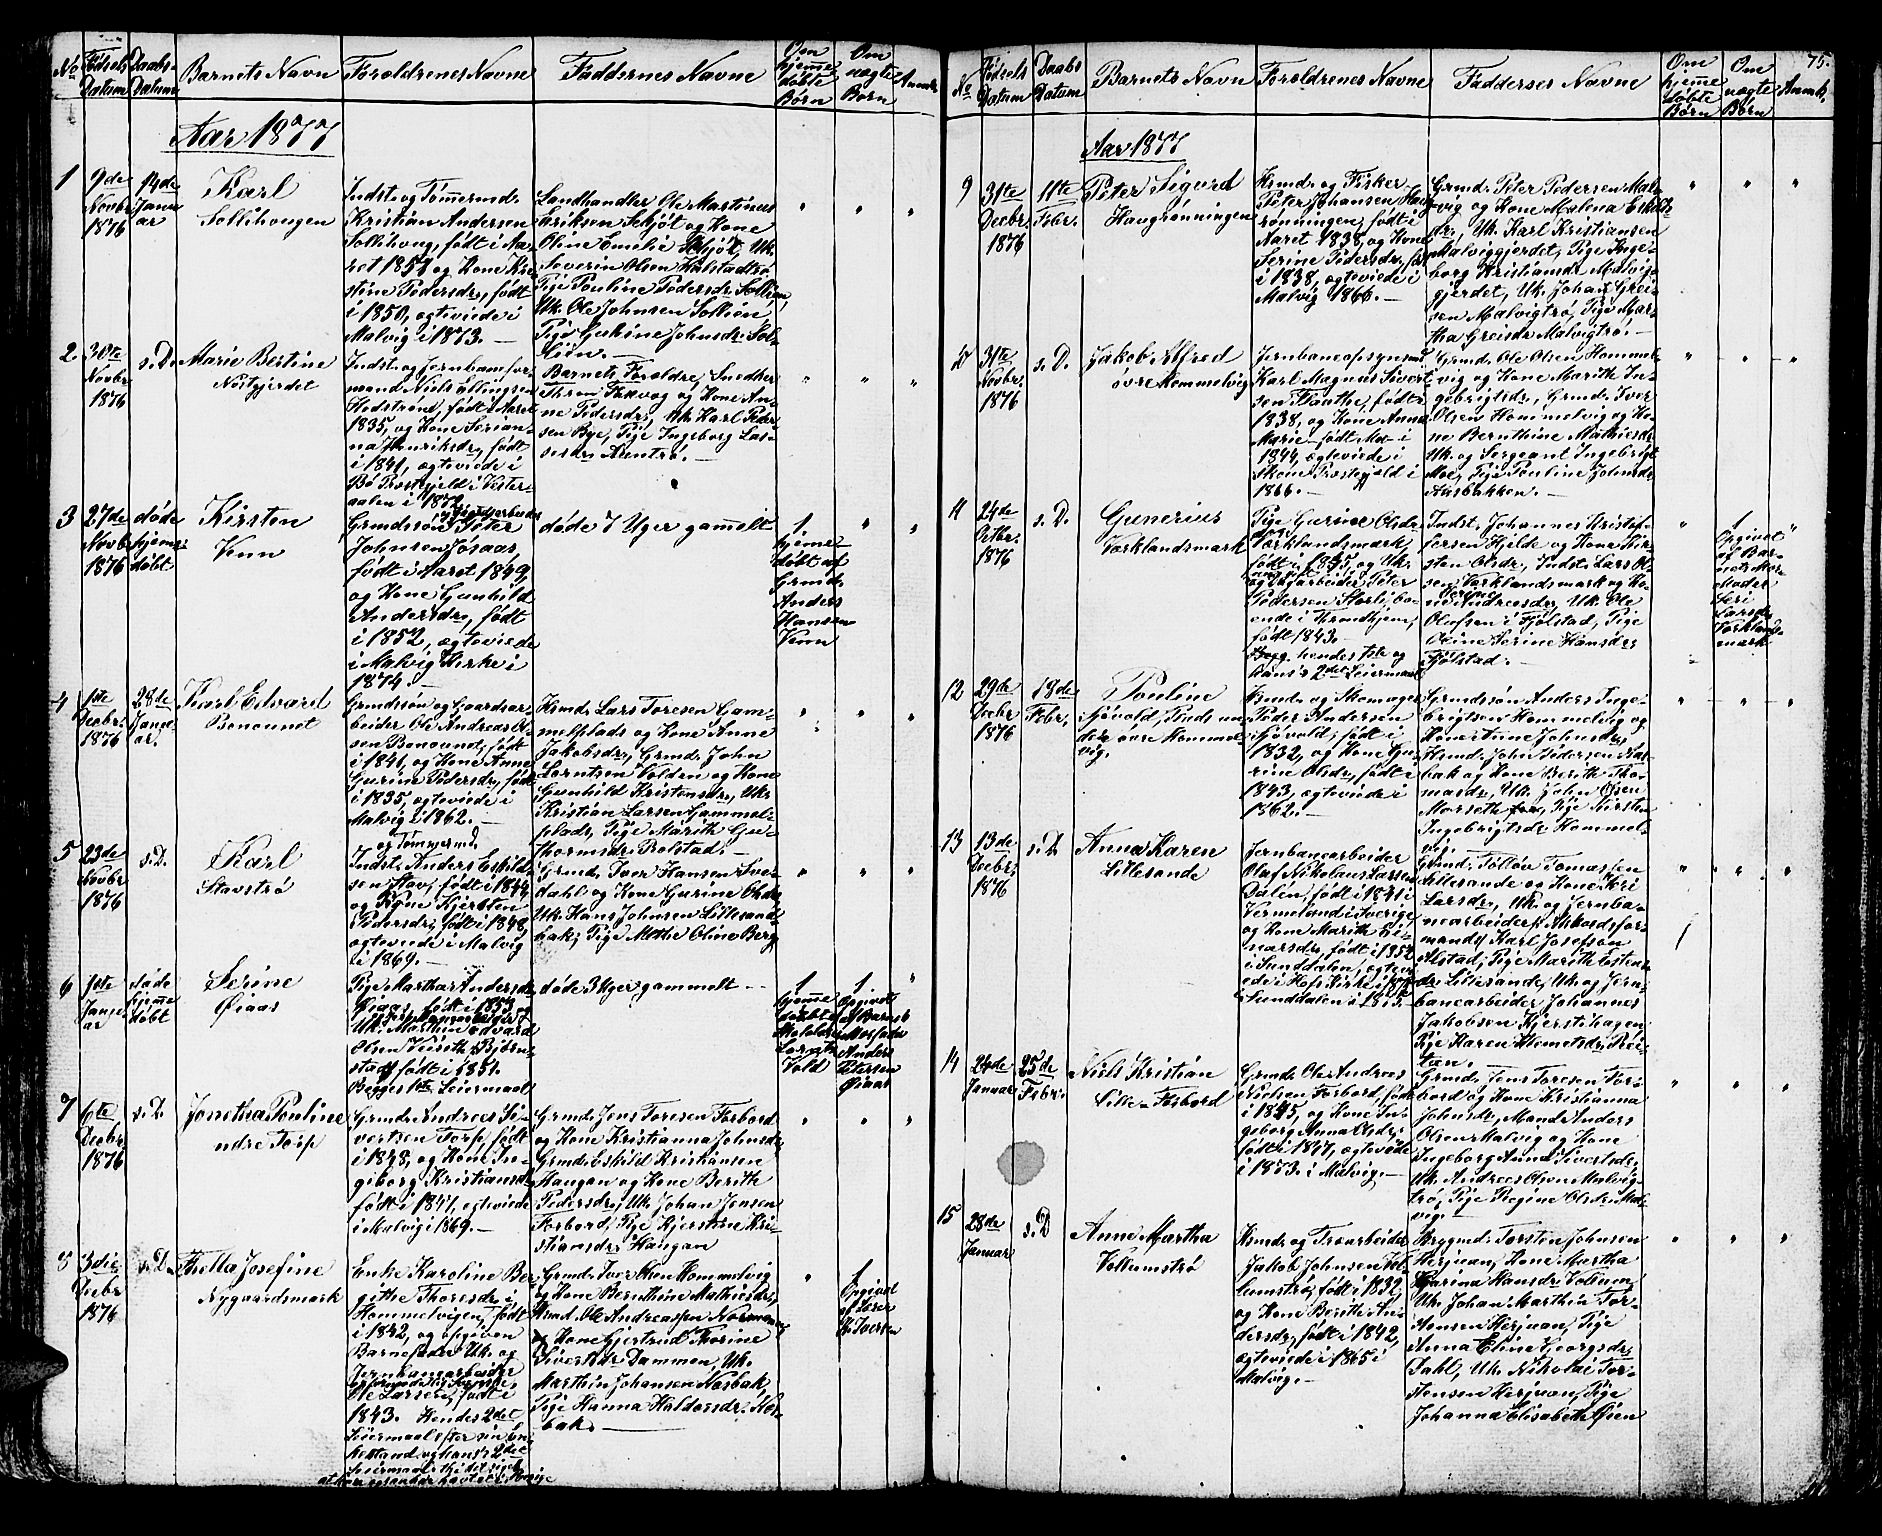 No
Fødsels Datum
Daabs- Datum
Barnets Navn
Forældrenes Navne
Faddernes Navne
Om hjemme døbte Børn
Om uægte Børn
Anmk.
Aar 1877
1
9de Novbr. 1876
14de Januar
Karl
Sollihougen
Indst. og Tømmermd.
Kristian Andersen
Sollihoug, født i Aa-
ret 1851 og Kone Kri-
stine Pedersdr., født
i 1850, egteviede i
Malvig i 1873.
Landhandler Ole Martinus
Eriksen Schjøt og Kone
Oline Emelie Schjøt, Uk.
Severin Olsen Halstadtrø
Pige Pouline Pedersdr. Sollien,
Uk. Ole Johnsen Sollien,
Pige Gurine Johnsdr. Sol-
lien.
2
30te Novbr. 1876
s. D.
Marie Bestine
Nostgjerdet
Indst. og Jernbanefor-
mand Niels Ellingsen
Hedstrønd, født i Aaret
1835, og Kone Serian-
na Henriksdr., født
i 1841, egteviede i
Bø Præstegjeld i Vester-
aalen i 1872
Barnets Forældre, Snedker
Thron Fævaag og Kone An-
ne Pedersdr., Uk. Karl Peter-
sen Bye, Pige Ingeborg Las-
sesdr. Auntrø.
3
27de Novbr. 1876
døde hjemme døbt
Kirsten
Venn
Grmdssøn Peter
Johnsen Jøsaas,
født i Aaret 1849,
og Kone Gunhild
Andersdr., født
i 1852, egteviede
i Malvig Kirke i
1874.
døde 7 Uger gamelt
1
hjemme
døbt af
Grmd.
Anders
Hansen
Venn
4
1ste Decbr. 1876
28de Januar
Karl Edvard
Bonaunet
Grmdssøn og Gaardsar-
beider Ole Andreas Ol-
sen Bonaunet, født
i 1841, og Kone Anne
Gurine Pedersdr., født
i 1835, egteviede i
Malvig i 1862.
Hsmd. Lars Toresen Gam-
melplads og Kone Anne
Jakobsdr., Grmd. John
Lorntsen Volden og Kone
Gunhild Kristensdr., Uk.
Kristian Larsen Gammel-
plads, Pige Marith Gu-
thormsdr. Rolstad.
5
23de Novbr. 1876
s. D.
Karl
Stavstrø
og Tømmermd.
Indst. Anders Eskild-
sen Stav, født i 1844,
og Kone Kjersten
Pedersdr., født i 1848,
egteviede i Malvig
i 1869.
Grmd. Iver Hansen Sve-
dahl og Kone Gurine Olsdr.,
Uk. Hans Johnsen Lillesand-
bak, Pige Mette Oline Berg
6
1ste Januar
døde hjemme døbt
Serine
Øiaas
Pige Martha Andersdr.
Øiaas, født i 1853,
Uk. Marthin Edvard
Olsen Veiseth, Bjørn-
stad, født i 1851.
Begges 1ste Leiermaal
døde 3 Uger gammelt
1
hjemme
døbt
Lornts
Vold
1
Opgivet
af Barnets
Morfader
Anders
Petersen
Øiaas
7
6te Decbr. 1876
s. D.
Jonetha Pouline
ndre Torp
Grmd. Andreas Si-
vertsen Torp, født
i 1848, og Kone In-
geborg Kristiansdr.,
født i 1847, egteviede
i Malvig i 1869.
Grmd. Jens Toresen Forbord
og Kone Kristianna Johnsdr.,
Grmd. Eskild Kristiansen
Haugan og Kone Berith
Pedersdr., Uk. Johan Jensen
Forbord, Pige Kjersten Kri-
stiansdr. Haugan
8
3die Decbr. 1876
s. D.
Thella Josefine
Nygaardsmark
Enke Karoline Ber-
gitte Thoresdr. i
Hommelvigen, født
i 1842, og opgiven
Barnefader Uk. og
Jernbanearbeider
Ole Larsen, født i
1843. Hendes 2det
Leiermaal efter sin En-
kestand og hans 2det
Grmd. Iver Olsen Hommelvig
og Kone Bernthine Mathiesdr.,
Hsmd. Ole Andreassen
og Kone Gjertrud Thorine
Sivertsdr. Dammen, Uk.
Marthin Johansen Næsbak,
Pige Hanna Haldorsdr. Næs-
bak.
1
Opgivet
af
Iversen
75.
No
Fødsels Datum
Daabs Datum
Barnets Navn
Forældrenes Navne
Faddernes Navne
Om hjemme døbte Børn
Om uægte Børn
Anmk.
Aar 1877
9
31te Decbr. 1876
11te Febr.
Peter Sigurd
Havgrønningen
Hsmd. og Fisker
Peter Johansen Hav-
grønningen, født i
Aaret 1838, og Kone
Serine Pedersdr., født
i 1838, egteviede i
Malvig 1866.
Grmd. Peter Pedersen Mal-
vig og Kone Malena Eskilds-
dr., Uk. Karl Kristiansen
Malviggjerdet, Pige Inge-
borg Kristiansdr. Malvig-
gjerdet, Uk. Johan Greis-
sen Malvigtrø, Pige Mar-
tha Greisdr. Malvigtrø.
10
31te Novbr. 1876
s. D.
Jakob Alfred
øvre Hommelvig
Jernbaneopsynsmd.
Karl Magnus Sivert-
sen Flauthe, født
1838, og Kone Anna
Marie født Mo i
1844, egteviede i
Præstegjeld i
1866.
Grmd. Ole Olsen Hommel-
vig og Kone Marith In-
gebrigtsdr., Grmd. Iver
Olsen Hommelvig og Ko-
ne Bernthine Mathiesdr.
Uk. og Sergeant Ingebrigt
Moe, Pige Pouline Johnsdr.
Aasbakken.
11
24de Octbr. 1876
s. D.
Gunerius
Værklandsmark
Pige Gurine Olsdr.
Værklandsmark,
født i 1845, og Uk.
Peter
Pedersen Storli, bo-
ende i Throndhjem,
født 1843.
hendes 1ste og
hans's 2det Leiermaal
Indst. Johannes Kristof-
fersen Hjelde og Kone Kir-
sten Olsdr., Indst. Lars Ol-
sen Værklandsmark og Ko-
ne Andreasdr., Uk. Ole
Olafsen i Fjølstad, Pige
Oline Serine Hansdr.
Fjølstad.
1
Opgivet
af Bar-
nets Mor-
moder
Siri
Larsdr.
Værklands-
mark
12
29te Decbr. 1876
18de Febr.
Pouline
Sjøvold, Plads un-
der øvre Hommel-
vig.
Hsmd. og Skomager
Peder Andersen
Sjøvold, født i
1832, og Kone Gu-
rine Olsdr., født i
1843, egteviede i
1862.
Grmdssøn Anders Inge-
brigtsen Hommelvig og
Kone Anne Johnsdr.,
Hsmd. John Pedersen Næs-
bak og Kone Berith Tho-
masdr., Uk. John Olsen
Morseth, Pige Kirsten
Ingebrigtsdr. Hommel-
vig.
13
13de Decbr. 1876
s. D
Anna Karen
Lillesande
Jernbanearbeider
Olaf Nikolaus Larsen
Dalén, født i 1841 i
Vermeland i Sverige
og Kone Marith Ei-
narsdr., født i 1852
i Sunddalen, egtevi-
ede i Hofs Kirke i
Sunddalen i 1875.
Grmd. Tølløv Tomassen
Lillesande og Kone Siri
Larsdr., Uk. og Jernba-
nearbeider, Akkordsfor-
mand Karl Josefsøn
Alstad, Pige Marith Estens-
dr. Lillesande, Uk. og Jern-
banearbeider Johannes
Jakobsen Kjerstihagen,
Pige Karen Klemetsdr. Rei-
tan.
14
24de Januar
25de Febr.
Niels Kristian
Lille-Forbord
Grmd. Ole Andreas
Nielsen Forbord, født
i 1845, og Kone In-
geborg Anna Olsdr.,
født i 1847, egteviede
i 1873. i Malvig.
Grmd. Jens Toresen For-
bord og Kone Kristianna
Johnsdr., Mand Anders
Olsen Malvig og Kone
Ingeborg Anna Sivertsdr.,
Uk. Andreas Olsen Malvig-
trø, Pige Regine Olsdr. Mal-
vig.
15
28de Januar
s. D
Anne Martha
Vollumstrø
Hsmd. og Træarbeider
Jakob Johnsen Vol-
lumstrø, født i 1839,
og Kone Berith An-
dersdr., født i 1842,
egteviede i 1865 i
Malvig.
Brygmd. Torsten Johnsen
Herjuan, Kone Martha
Karina Hansdr. Vollum,
Uk. Johan Marthin Tor-
stensen Herjuan, Pige
Anna Eline Georgsdr.
Dahl, Uk. Nikolai Tor-
stensen Herjuan, Pige
Johanna Elisabeth Øien